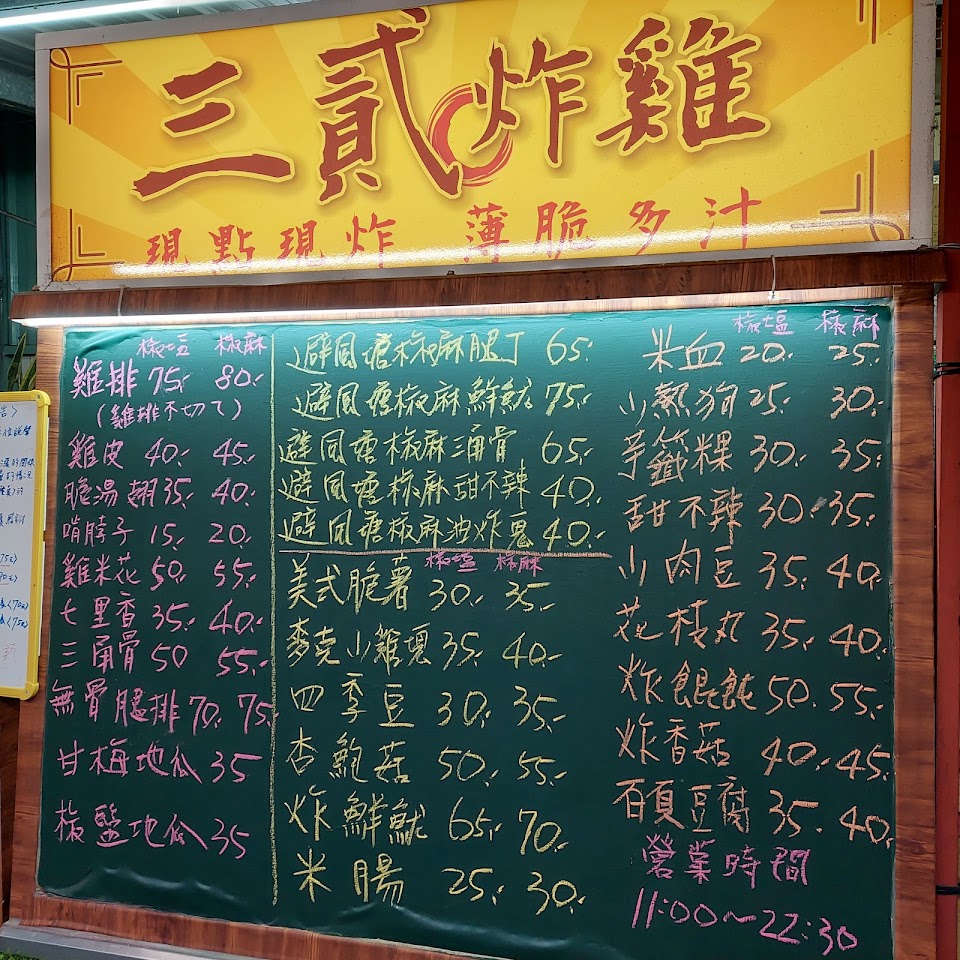 三貳炸雞
現點現炸 薄脆多汁
椒塩 椒麻
雞排 75.- 80.-
(雞排不切て)
雞皮 40.- 45.-
脆湯翅 35.- 40.-
啃脖子 15.- 20.-
雞米花 50.- 55.-
七里香 35.- 40.-
三角骨 50 55.-
無骨腿排 70.- 75.-
甘梅地瓜 35
椒塩地瓜 35
避風塘椒麻腿丁 65.-
避風塘椒麻鮮魷 75.-
避風塘椒麻三角骨 65.-
避風塘椒麻甜不辣 40.-
避風塘椒麻油炸鬼 40.-
椒塩 椒麻
美式脆薯 30.- 35.-
麥克小雞塊 35.- 40.-
四季豆 30.- 35.-
杏鮑菇 50.- 55.-
炸鮮魷 65.- 70.-
米腸 25.- 30.-
椒塩 椒麻
米血 20.- 25.-
小熱狗 25.- 30.-
芋籤粿 30.- 35.-
甜不辣 30.- 35.-
小肉豆 35.- 40.-
花枝丸 35.- 40.-
炸餛飩 50. 55.-
炸香菇 40.- 45.-
百頁豆腐 35.- 40.-
營業時間
11:00~22:30